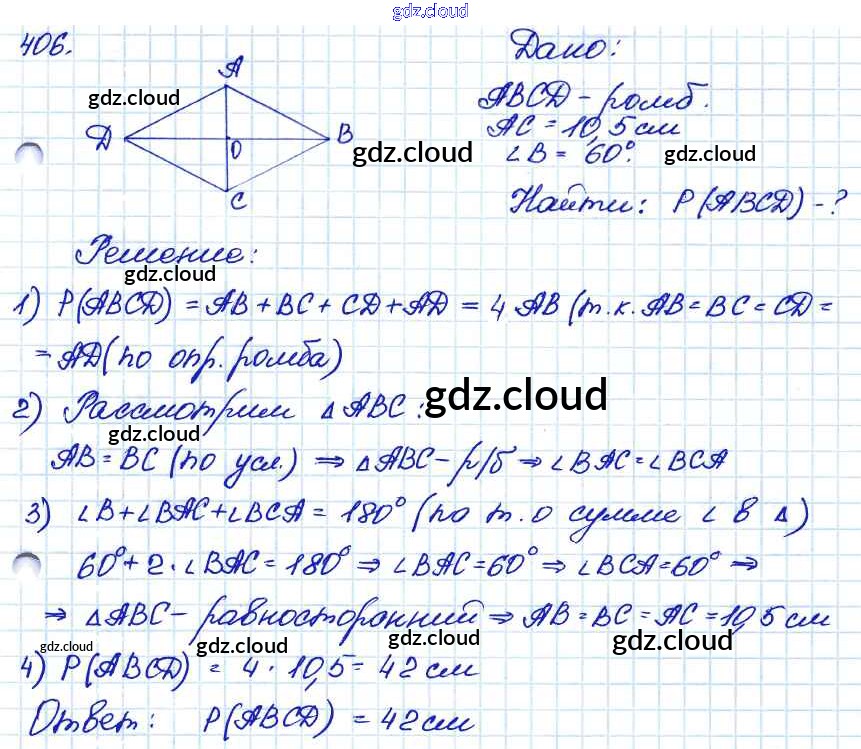 gdz.cloud
406.
Дано:
A
gdz.cloud
ABCD - ромб.
AC = 10,5 см
D
O
B
gdz.cloud
∠B = 60°.
gdz.cloud
C
Найти: P(ABCD) - ?
Решение:
gdz.cloud
1) P(ABCD) = AB + BC + CD + AD = 4 AB (т.к. AB = BC = CD =
= AD (по опр. ромба)
2) Рассмотрим △ABC:
gdz.cloud
gdz.cloud
AB = BC (по усл.) ⇒ △ABC - р/б ⇒ ∠BAC = ∠BCA
3) ∠B + ∠BAC + ∠BCA = 180° (по т. о сумме ∠ в △)
60° + 2 · ∠BAC = 180° ⇒ ∠BAC = 60° ⇒ ∠BCA = 60° ⇒
⇒ △ABC - равносторонний ⇒ AB = BC = AC = 10,5 см
gdz.cloud
gdz.cloud
gdz.cloud
4) P(ABCD) = 4 · 10,5 = 42 см
Ответ: P(ABCD) = 42 см